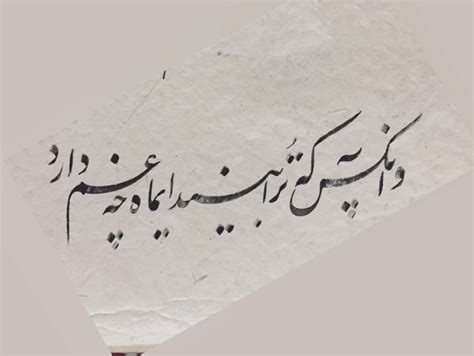 وآنکس که تُرا بیند ایماه چه غم دارد